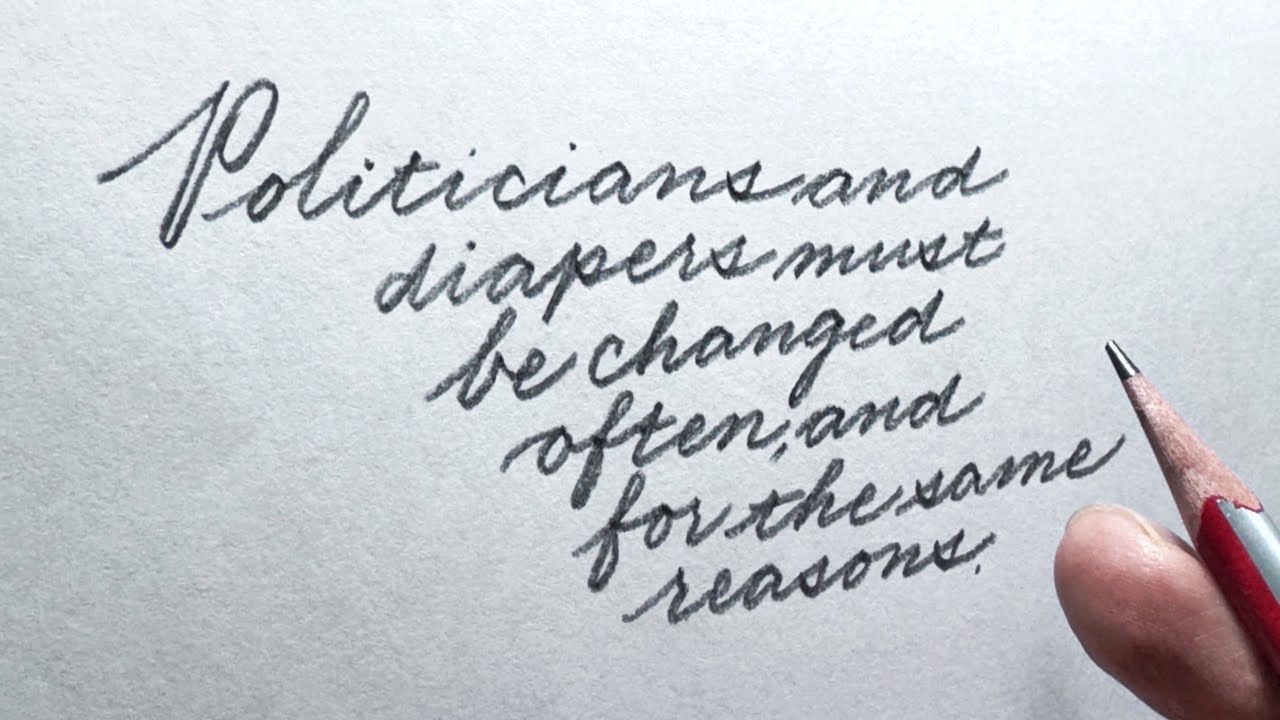 Politicians and
diapers must
be changed
often, and
for the same
reasons.